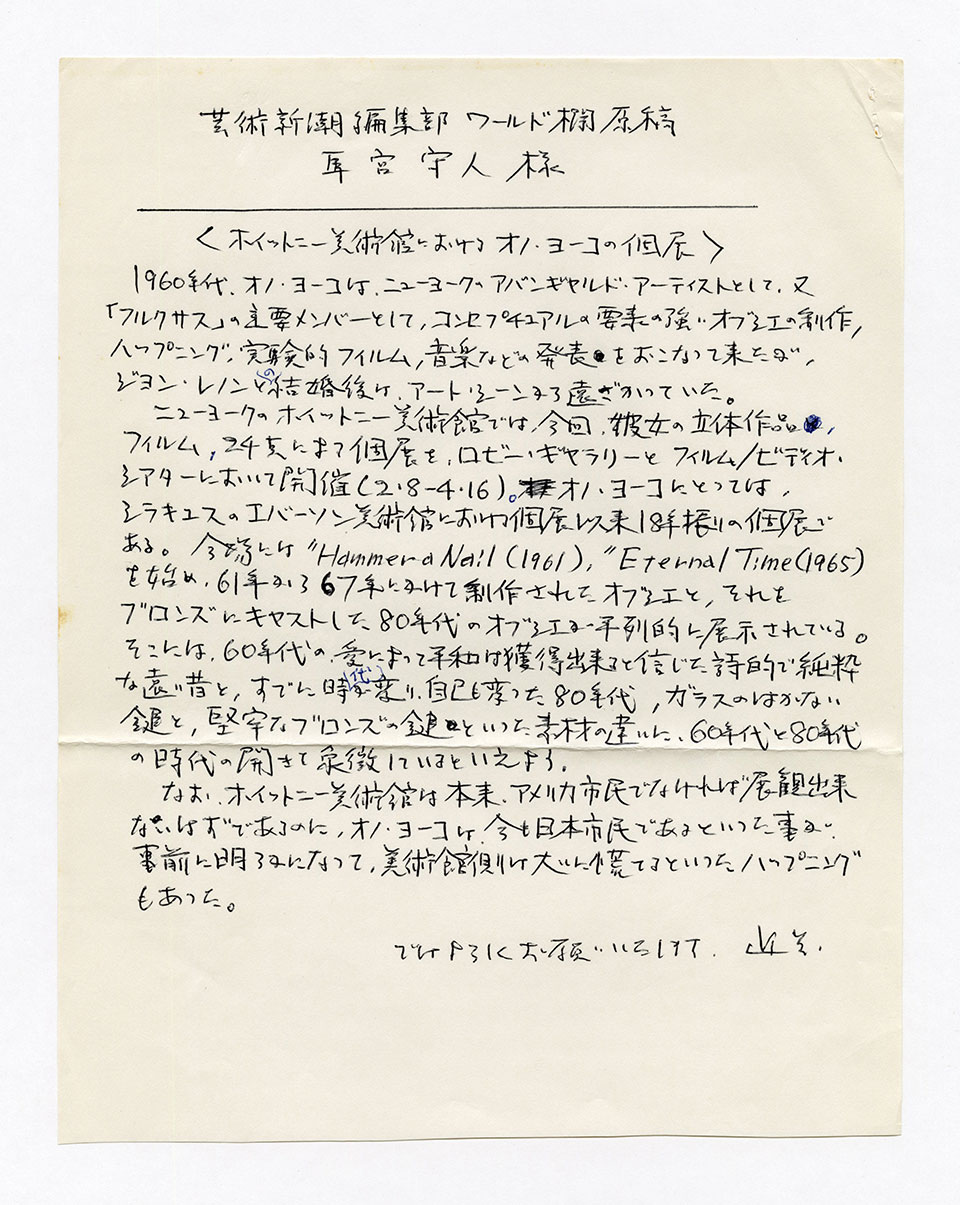 芸術新潮編集部 ワールド欄原稿
宮守人 様
〈ホイットニー美術館における オノ・ヨーコの個展〉
1960年代、オノ・ヨーコは、ニューヨークのアバンギャルド・アーティストとして、又
「フルクサス」の主要メンバーとして、コンセプチュアルの要素の強いオブジェの制作,
ハップニング、実験的フィルム, 音楽などの発表をおこなって来たが,
ジョン・レノンとの結婚後は、アート・シーンから遠ざかっていた。
ニューヨークのホイットニー美術館では、今回、彼女の立体作品,
フィルム, 24点によって個展を、ロビー・ギャラリーと フィルム/ビディオ・
シアターにおいて開催(2・8-4・16)。オノ・ヨーコにとっては,
シラキュスのエバーソン美術館における個展以来18年振りの個展で
ある。会場には "Hammer a Nail (1961), "Eternal Time (1965)
を始め、61年から67年にかけて制作されたオブジェと, それを
ブロンズにキャストした80年代のオブジェが平列的に展示されている。
そこには、60年代の、愛によって平和は獲得出来ると信じた詩的で純粋
な遠い昔と, すでに時代が変り、自己も変った80年代, ガラスのはかない
鍵と, 堅牢なブロンズの鍵といった素材の違いに、60年代と80年代
の時代の開きを象徴しているといえよう。
なお、ホイットニー美術館は本来、アメリカ市民でなければ展観出来
ないはずであるのに, オノ・ヨーコは、今も日本市民であるといった事が、
事前に明るみになって, 美術館側は大いに慌てるといったハップニング
もあった。
ではよろしくお願いいたします.